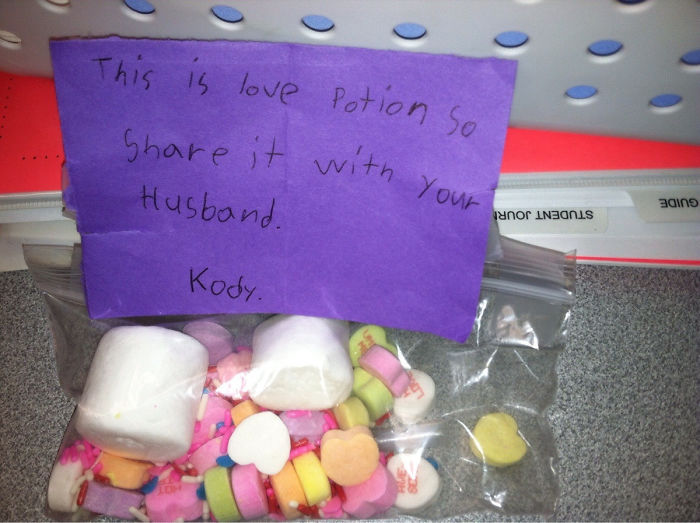 This is love Potion so
Share it with your
Husband.
Kody.
STUDENT JOURN
GUIDE